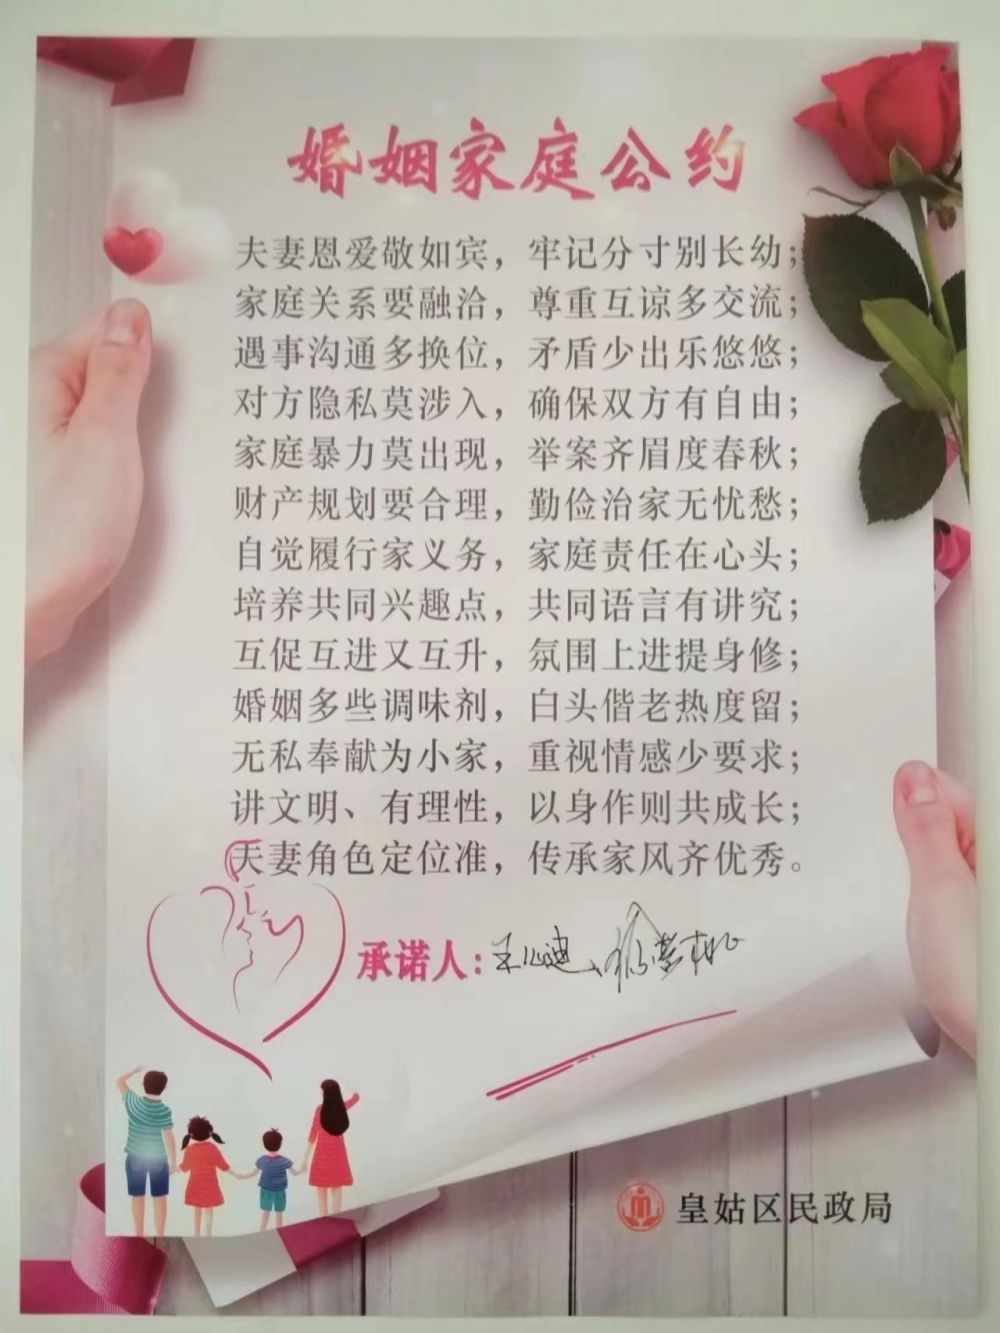 婚姻家庭公约
夫妻恩爱敬如宾，牢记分寸别长幼；
家庭关系要融洽，尊重互谅多交流；
遇事沟通多换位，矛盾少出乐悠悠；
对方隐私莫涉入，确保双方有自由；
家庭暴力莫出现，举案齐眉度春秋；
财产规划要合理，勤俭治家无忧愁；
自觉履行家义务，家庭责任在心头；
培养共同兴趣点，共同语言有讲究；
互促互进又互升，氛围上进提身修；
婚姻多些调味剂，白头偕老热度留；
无私奉献为小家，重视情感少要求；
讲文明、有理性，以身作则共成长；
夫妻角色定位准，传承家风齐优秀。
承诺人：
皇姑区民政局